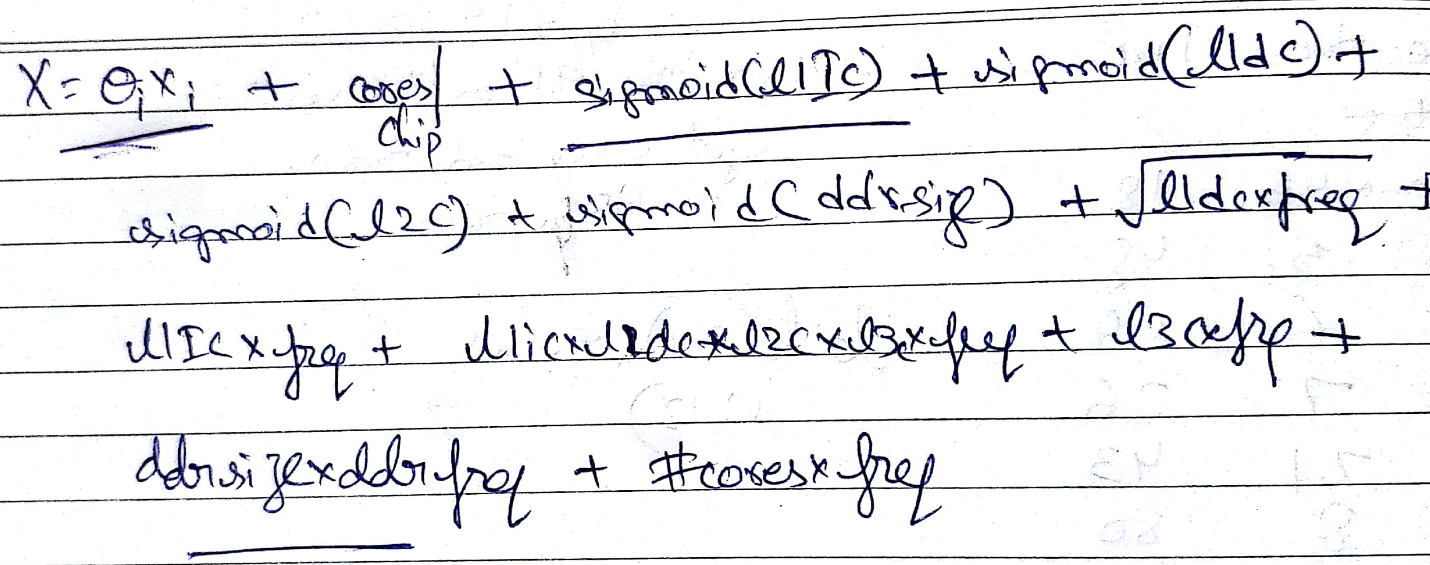 X = θixi + cores/chip + sigmoid(l1Ic) + sigmoid(l1dc) +
sigmoid(l2c) + sigmoid(ddrsize) + √l1dcxfreq +
l1Icxfreq + l1icxl1dcxl2cxl3cxfreq + l3cxfrq +
ddrsizexddrfreq + #coresxfreq